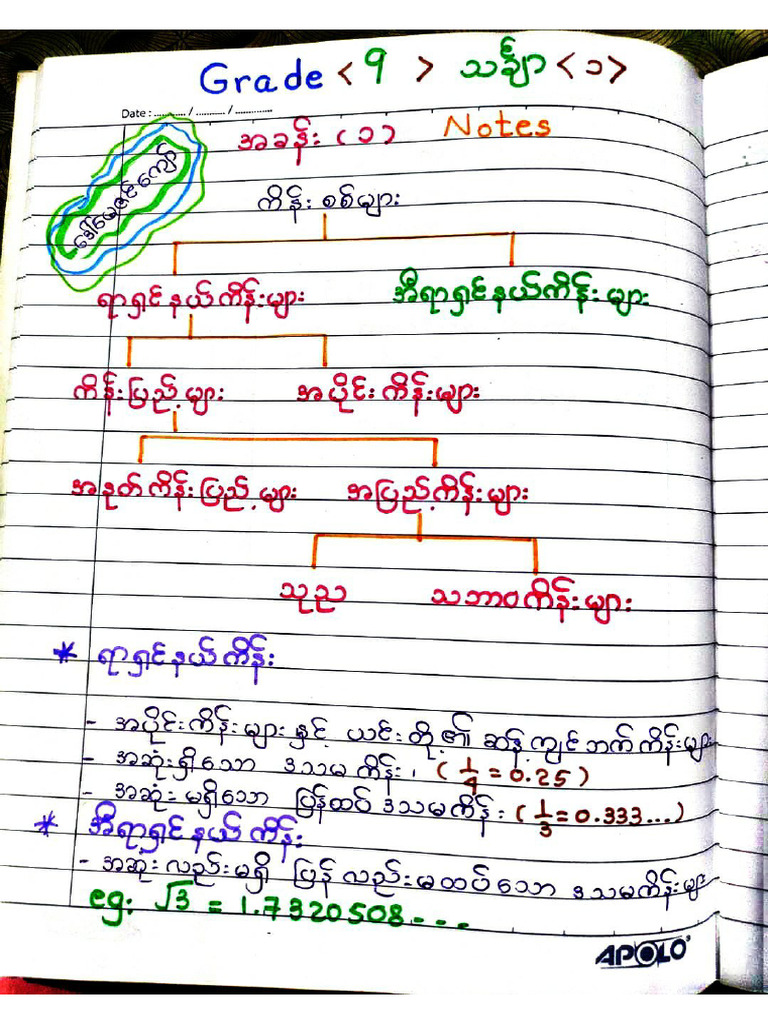 Grade < 9 > သင်္ချာ < ၁ >
Date : ........... / ........... / .............
အခန်း (၁) Notes
ဒေါ်မေဇင်ကျော်
ကိန်းစစ်များ
ရာရှင်နယ်ကိန်းများ အီရာရှင်နယ်ကိန်းများ
ကိန်းပြည့်များ အပိုင်းကိန်းများ
အနုတ်ကိန်းပြည့်များ အပြည့်ကိန်းများ
သုည သဘာဝကိန်းများ
* ရာရှင်နယ်ကိန်း
- အပိုင်းကိန်းများနှင့် ယင်းတို့၏ ဆန့်ကျင်ဘက်ကိန်းများ
- အဆုံးရှိသော ဒသမကိန်း၊ (1/4 = 0.25)
- အဆုံးမရှိသော ပြန်ထပ်ဒသမကိန်း၊ (1/3 = 0.333...)
* အီရာရှင်နယ်ကိန်း
- အဆုံးလည်းမရှိ ပြန်လည်းမထပ်သော ဒသမကိန်းများ
eg: √3 = 1.7320508---
APOLO